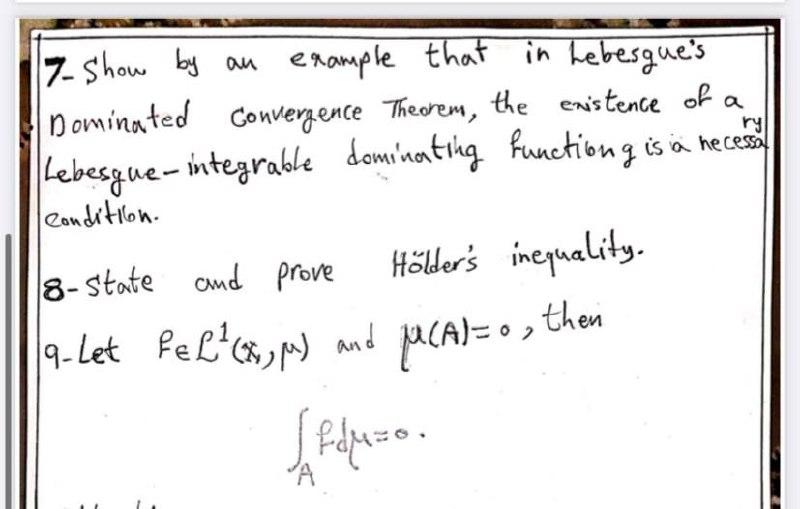 7- Show by an example that in Lebesgue's
Dominated Convergence Theorem, the existence of a
Lebesgue-integrable dominating function g is a necessary
condition.
8- State and prove Hölder's inequality.
9- Let f∈L¹(X,μ) and μ(A)=0, then
∫_A fdμ=0.